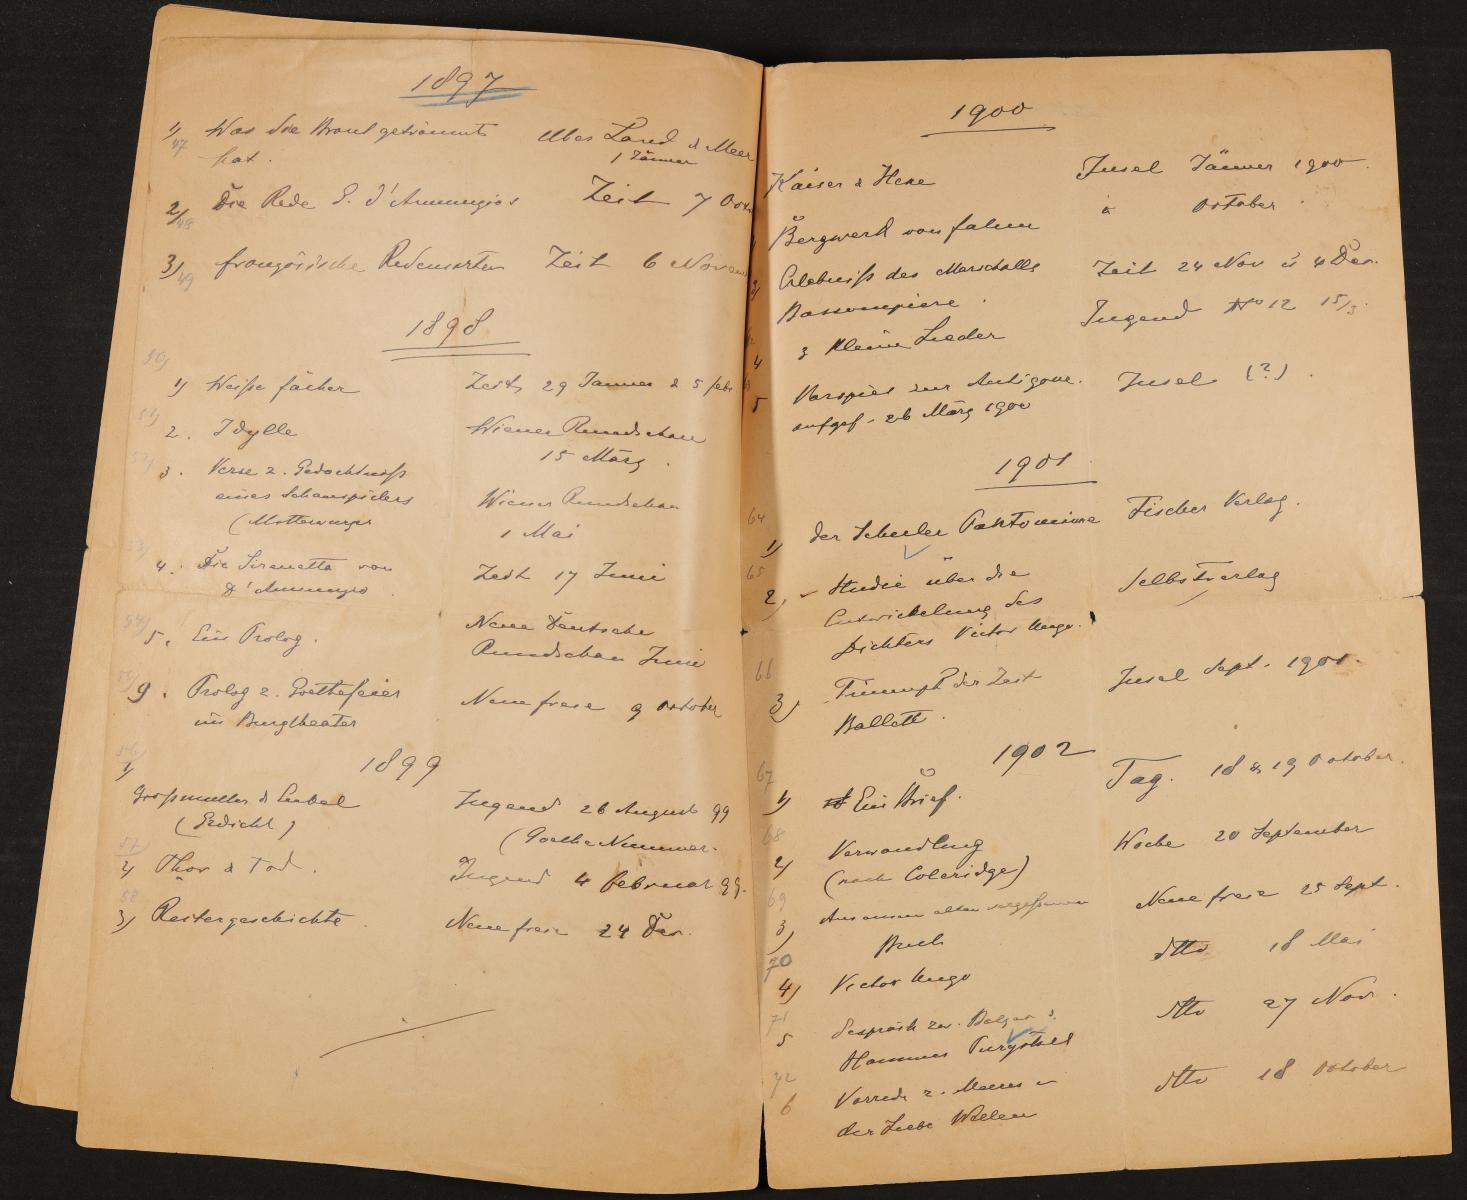 1897
1) Was die Braut geträumt Über Land & Meer
47 hat. 1 Jänner
2) Die Rede G. d'Annunzios Zeit 7 Oct
48
3) französische Redensarten Zeit 6 Novem
49
1898
50)
1) Weiße fächer Zeit 29 Jänner & 5 febr
51)
2. Idylle Wiener Rundschau
15 März.
52)
3. Verse z. Gedächtniß
eines Schauspielers Wiener Rundschau
(Mitterwurzer 1 Mai
53)
4. Die Sirenetta von Zeit 17 Juni
d'Annunzio.
54)
5. Ein Prolog. Neue Deutsche
Rundschau Juni
55)
9. Prolog z. Goethefeier Neue freie 9 October
im Burgtheater
56)
1) 1899
Großmutter & Enkel Jugend 26 August 99
(Gedicht) (Goethe Nummer.
57)
2) Thor & Tod. Jugend 4 februar 99.
58
3) Reitergeschichte. Neue freie 24 Dec.
1900
Kaiser & Hexe Insel Jänner 1900.
Bergwerk von falun " October.
3) Erlebniß des Marschalls Zeit 24 Nov u 4 Dec.
Bassompiere.
4 3 kleine Lieder Jugend No 12 15/3.
5 Vorspiel zur Antigone. Insel (?).
aufgef. 26 März 1900
1901
64
1) der Schueler Pantomime Fischer Verlag.
65
2) Studie über die Selbstverlag
Entwickelung des
Dichters Victor Hugo.
66
3) Triumph der Zeit Insel Sept. 1901.
Ballett.
1902
67
1) Ein Brief. Tag. 18 & 19 October.
68
2) Verwandlung Woche 20 September
(nach Coleridge)
69
3) Aus einem alten vergessenen Neue freie 25 Sept.
Buch
70
4) Victor Hugo dtto 18 Mai
71
5 Gespräch zw. Balzac u. dtto 27 Nov.
Hammer Purgstall
72
6 Vorrede z. Meeres u dtto 18 October
der Liebe Wellen